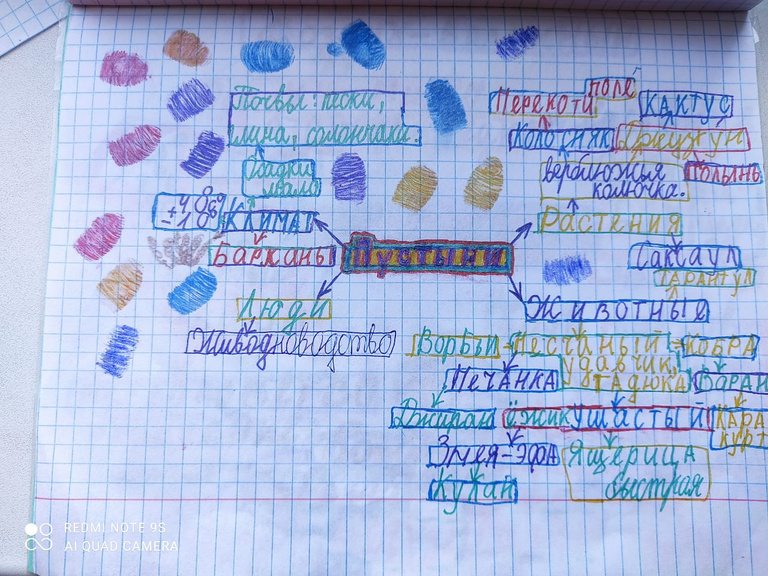 Почвы: пески,
глина, солончаки.
Осадки
мало
+40°
-10°
КЛИМАТ
Барханы
Пустыни
Люди
Животноводство
Перекати
поле
КАКТУС
Колосняк
Джузгун
Полынь
верблюжья
колючка.
Растения
Саксаул
ТАРАНТУЛ
Животные
Ворбьи
Песчаный
удавчик
КОБРА
Печанка
ГАДЮКА
Варан
Джиран
ёжик УШАСТЫЙ
КАРА
КУРТ
Змея-ЭФА
Ящерица
быстрая
Кулан
REDMI NOTE 9S
AI QUAD CAMERA